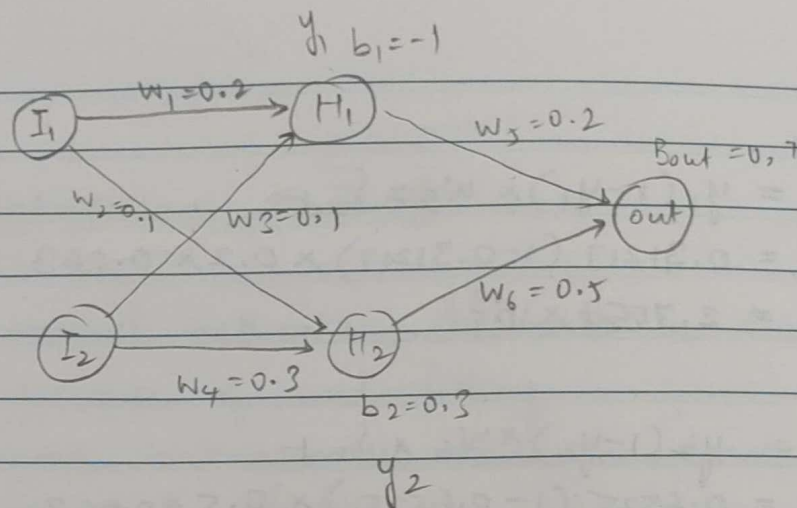 y₁ b₁=-1
I₁ W₁=0.2 H₁
W₅=0.2
Bout=0.7
W₂=0.1 W3=0.1 out
W₆=0.5
I₂ H₂
W₄=0.3
b₂=0.3
y₂